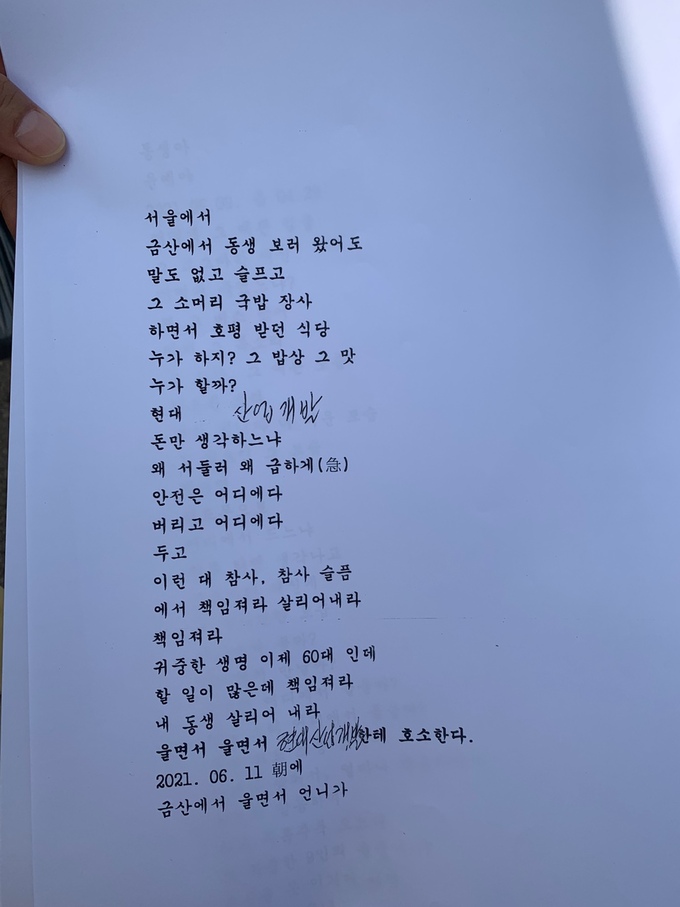 서울에서
금산에서 동생 보러 왔어도
말도 없고 슬프고
그 소머리 국밥 장사
하면서 호평 받던 식당
누가 하지? 그 밥상 그 맛
누가 할까?
현대 산업개발
돈만 생각하느냐
왜 서둘러 왜 급하게(急)
안전은 어디에다
버리고 어디에다
두고
이런 대 참사, 참사 슬픔
에서 책임져라 살리어내라
책임져라
귀중한 생명 이제 60대 인데
할 일이 많은데 책임져라
내 동생 살리어 내라
울면서 울면서 현대산업개발한테 호소한다.
2021. 06. 11 朝에
금산에서 울면서 언니가